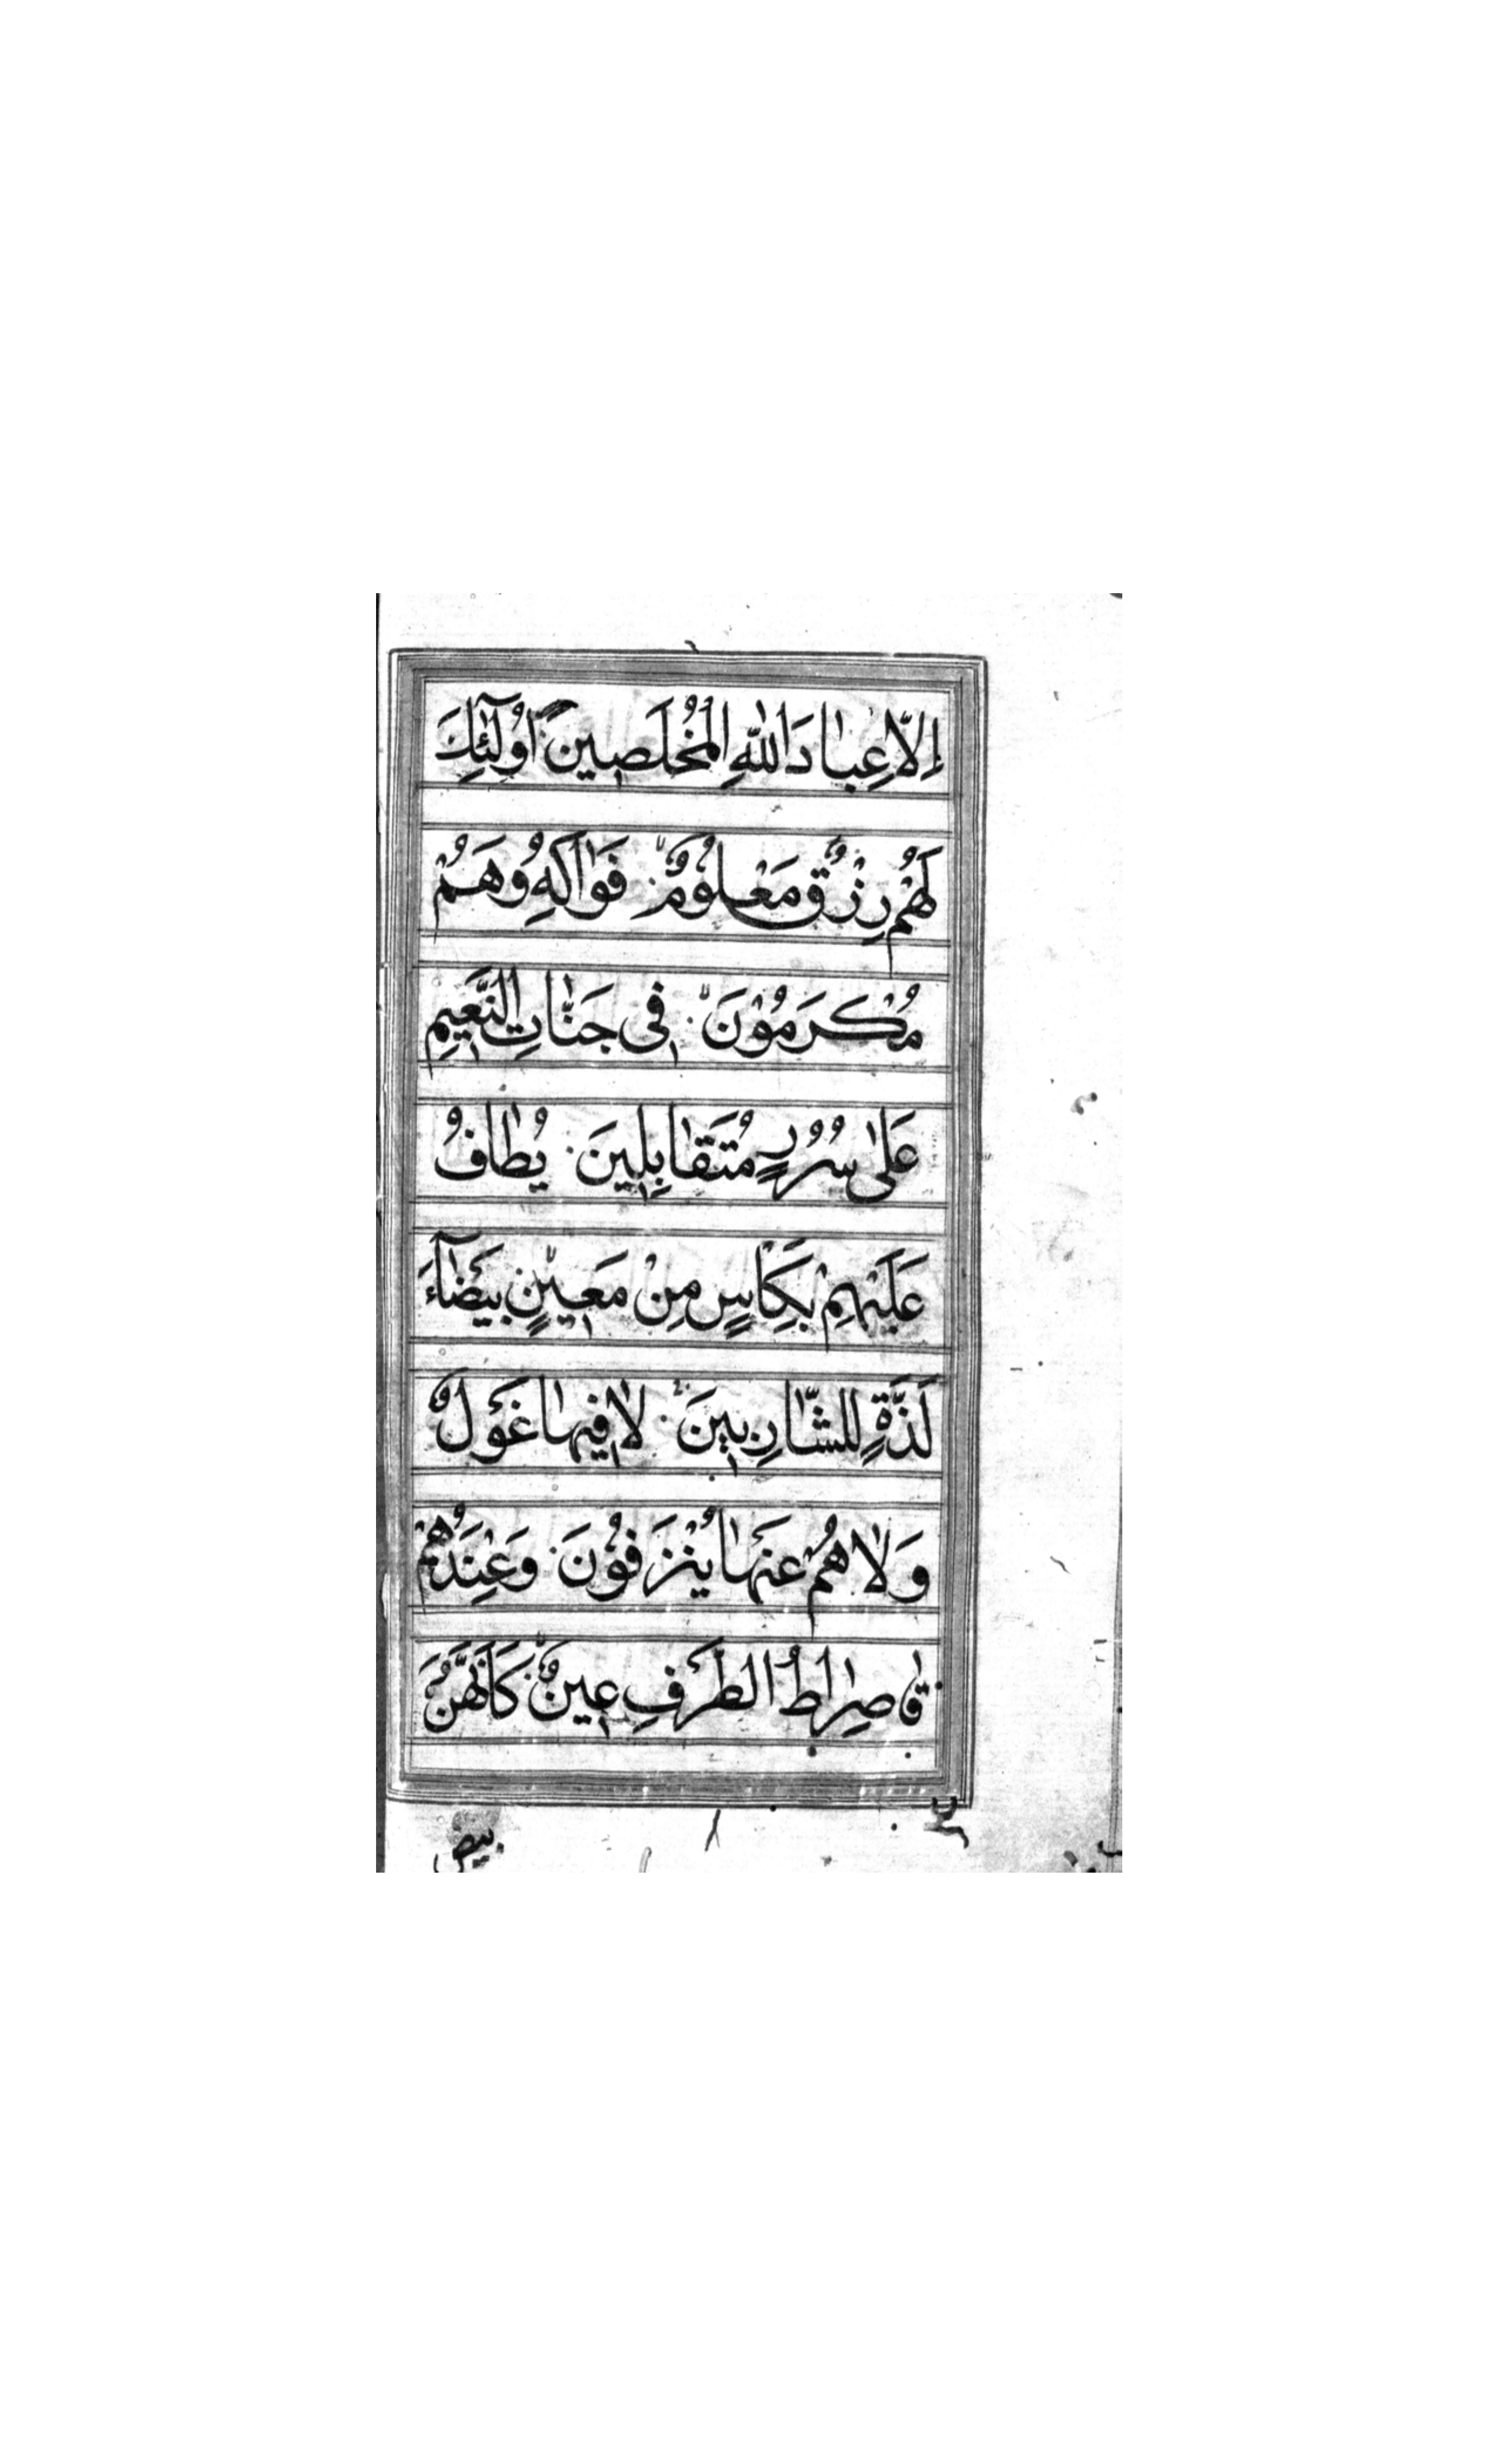 اِلّاعِبٰادَاللهِ الْمُخْلَصِينَ اُولٰٓئِكَ
لَهُمْ رِزْقٌ مَعْلُومٌ فَوٰاكِهُ وَهُمْ
مُكْرَمُوْنَ فِى جَنّٰاتِ النَّعِيمِ
عَلٰى سُرُرٍ مُتَقٰابِلِينَ يُطٰافُ
عَلَيْهِمْ بِكَاْسٍ مِنْ مَعِينٍ بَيْضٰٓاءَ
لَذَّةٍ لِلشّٰارِبِينَ لٰا فِيهٰا غَوْلٌ
وَلٰا هُمْ عَنْهٰا يُنْزَفُوْنَ وَعِنْدَهُمْ
قٰاصِرٰاطُ الطَّرْفِ عِينٌ كَاَنَّهُنَّ
بيض